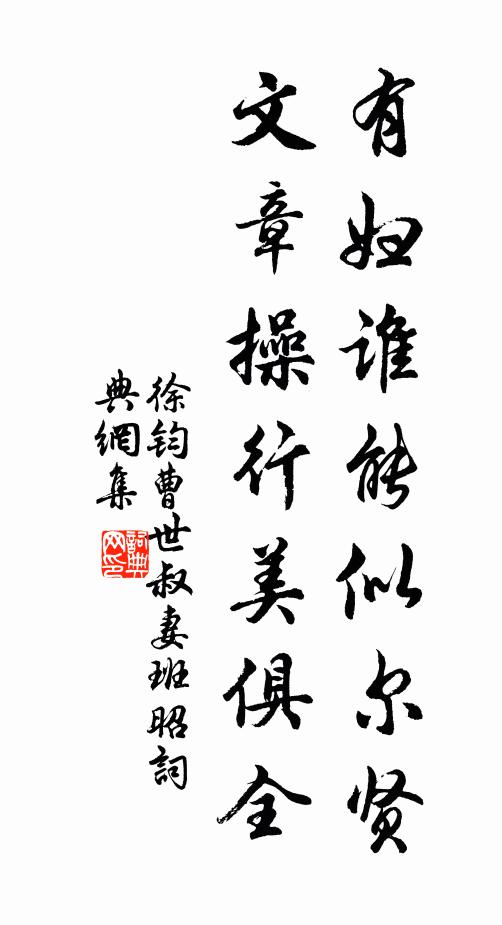 有妇谁能似尔贤
文章操行美俱全
徐鈞曹世叔妻班昭詞
典網集
詞典网印